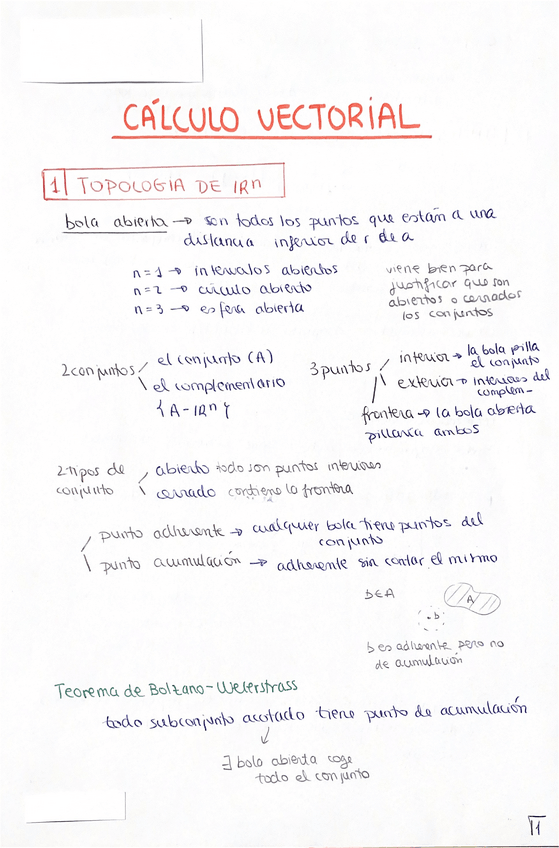 CÁLCULO VECTORIAL
1 TOPOLOGIA DE IRn
bola abierta → son todos los puntos que están a una
distancia inferior de r de a
n = 1 → intervalos abiertos
n = 2 → círculo abierto
n = 3 → esfera abierta
viene bien para
justificar que son
abiertos o cerrados
los conjuntos
2 conjuntos / el conjunto (A)
\ el complementario
{A - IRn}
3 puntos / interior → la bola pilla
el conjunto
| \ exterior → interiores del
complem-
frontera → la bola abierta
pillaría ambos
2 tipos de
conjunto
/ abierto todo son puntos interiores
\ cerrado contiene la frontera
/ punto adherente → cualquier bola tiene puntos del
conjunto
\ punto acumulación → adherente sin contar el mismo
b∈A
A
b
b es adherente pero no
de acumulación
Teorema de Bolzano-Weierstrass
todo subconjunto acotado tiene punto de acumulación
↓
∃ bola abierta coge
todo el conjunto
11